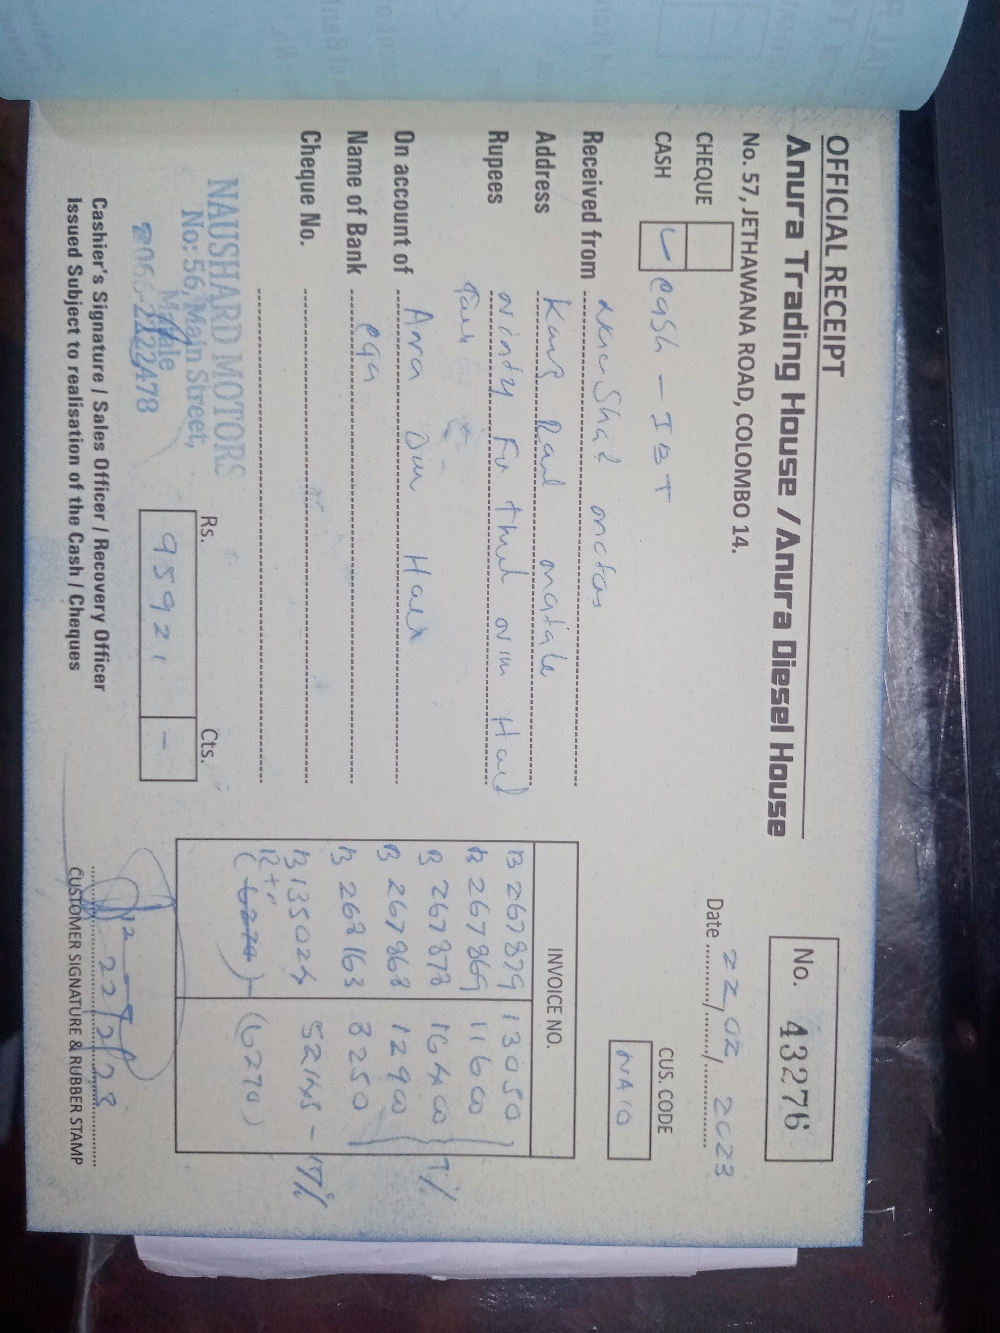 OFFICIAL RECEIPT
Anura Trading House / Anura Diesel House
No. 57, JETHAWANA ROAD, COLOMBO 14.
No. 43276
Date 22/02/2023
CHEQUE
CASH
cash - IBT
CUS. CODE
NA10
Received from Naushad motors
Address Kings Road matale
Rupees
On account of
Name of Bank
Cheque No.
INVOICE NO.
B 267879 13050
B 267869 11600
B 267878 16400 7%
B 267868 12900
B 268163 8250
B 135024 52145 - 17%
(6270) (6270)
NAUSHARD MOTORS
No: 56, Main Street,
Matale
066-2222478
Rs. Cts.
95921 -
22/2/23
Cashier's Signature / Sales Officer / Recovery Officer
Issued Subject to realisation of the Cash / Cheques
CUSTOMER SIGNATURE & RUBBER STAMP